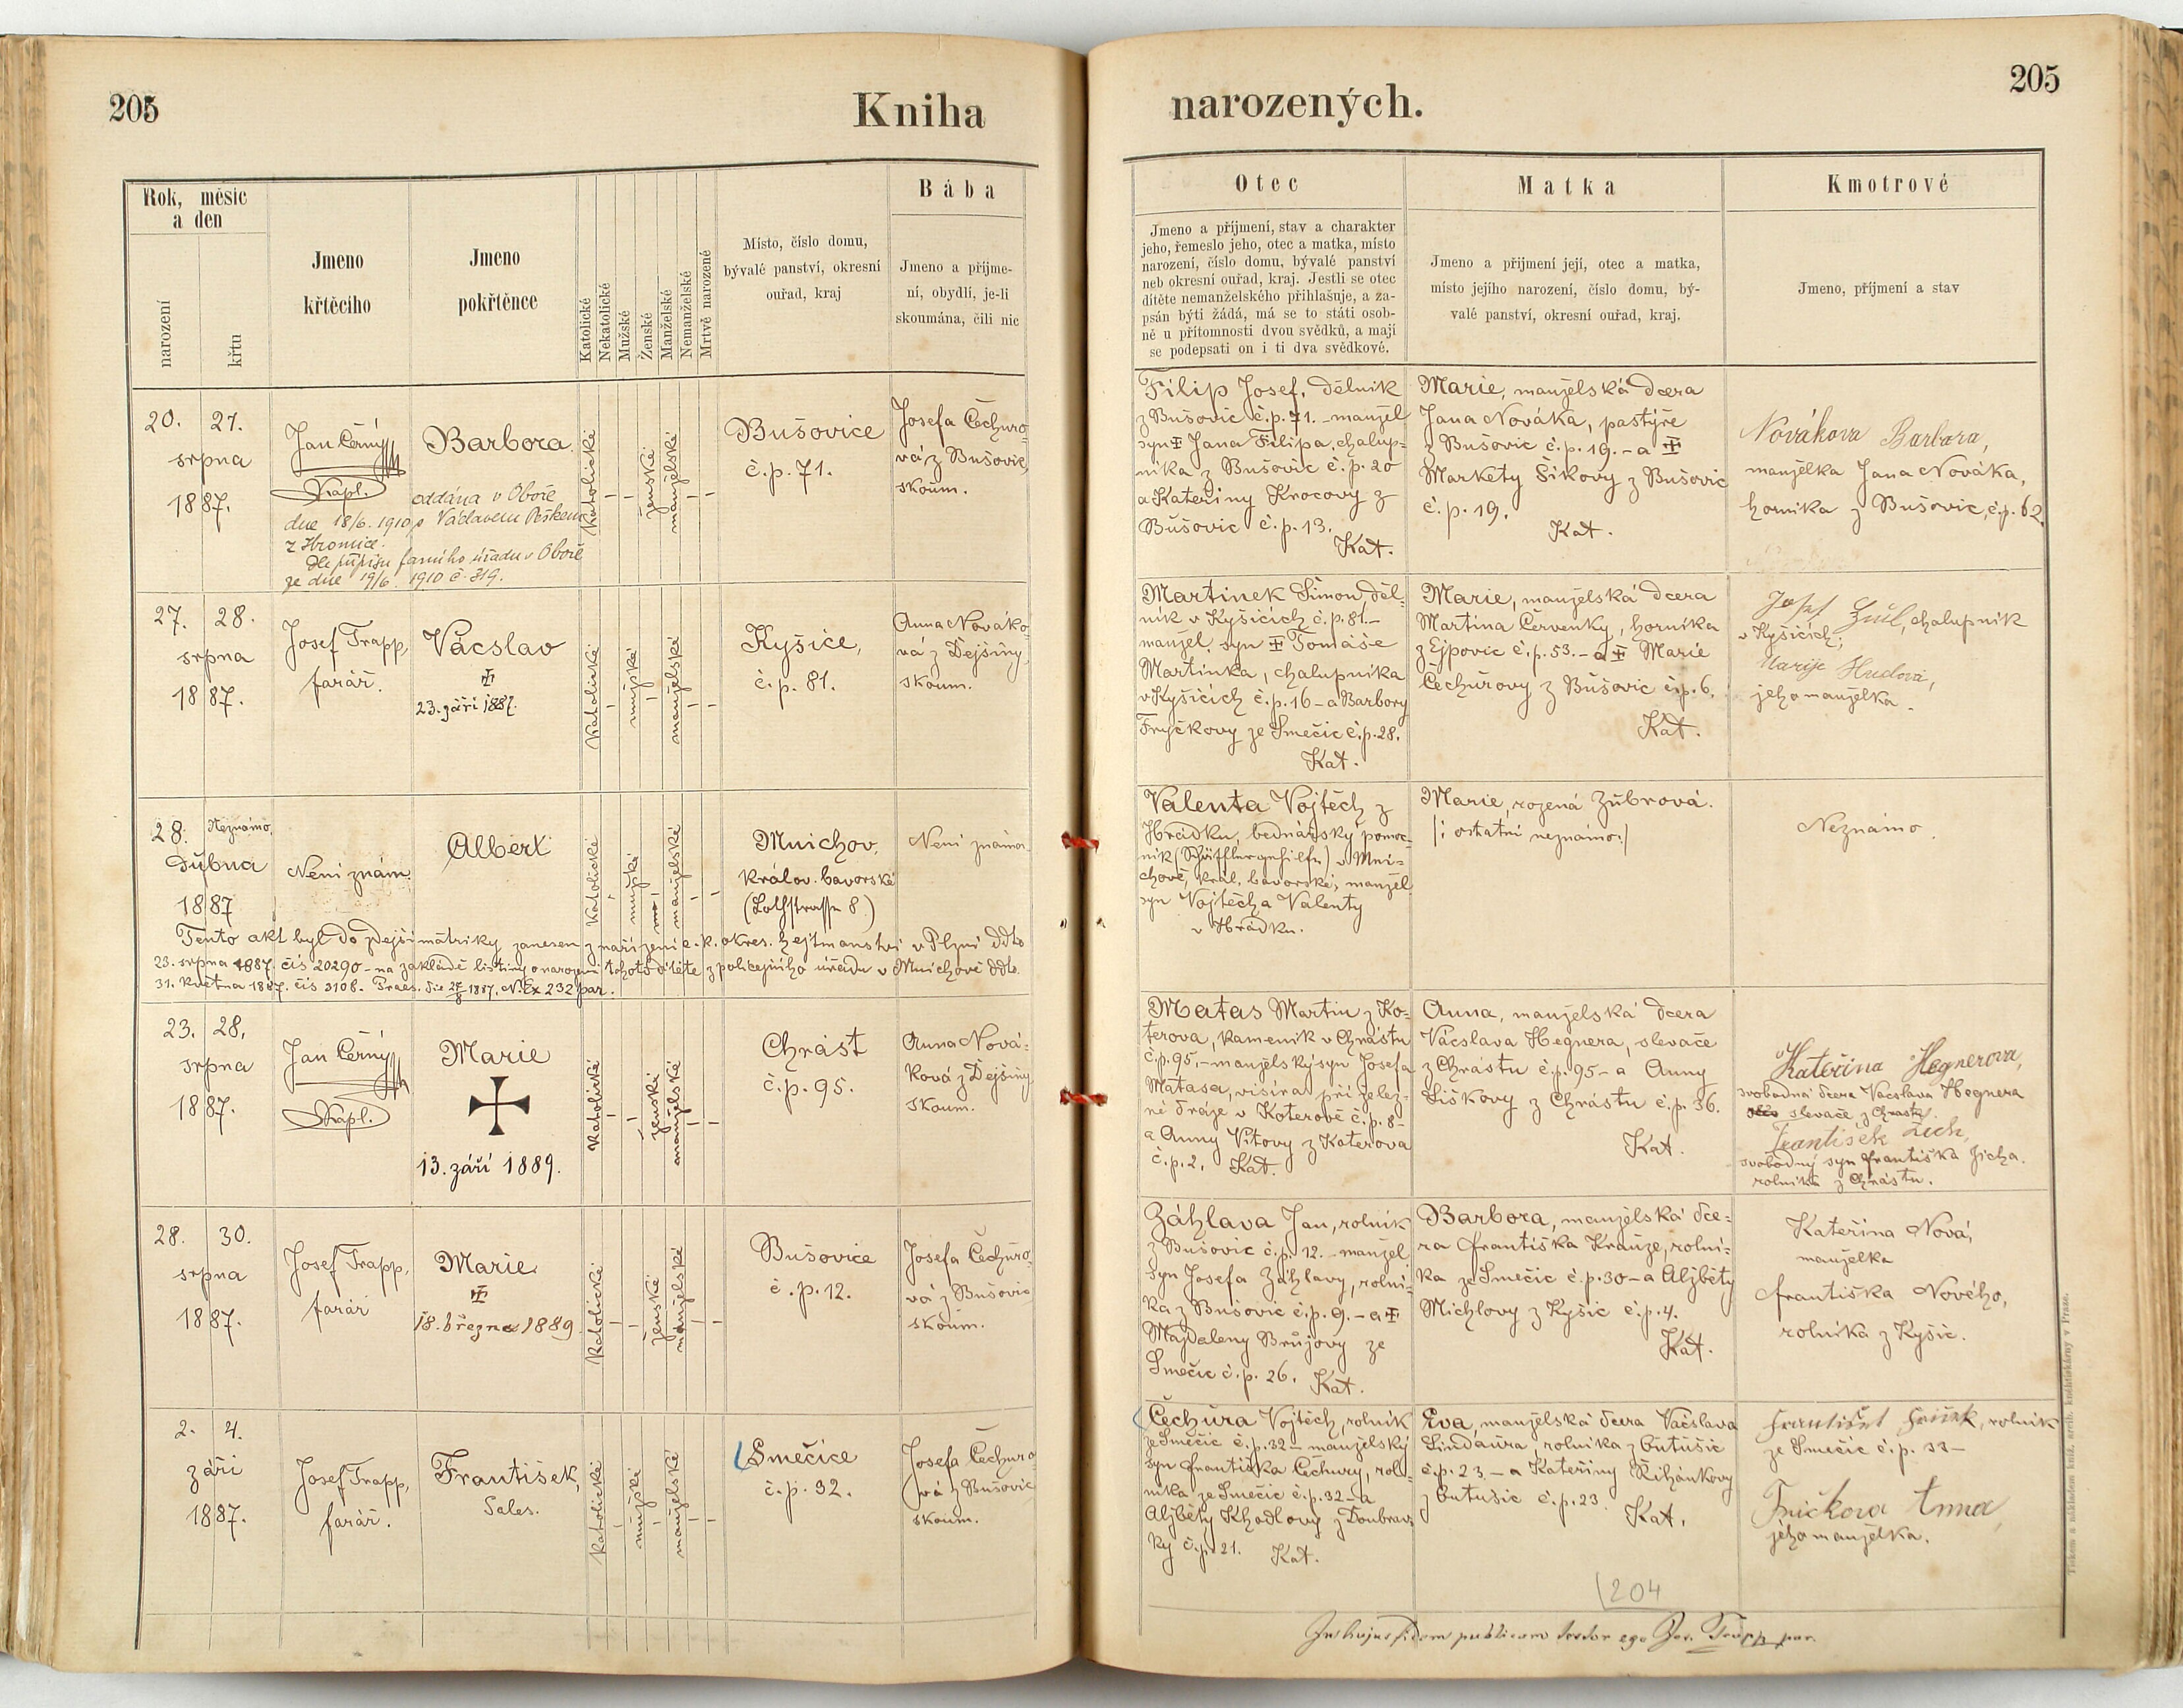 205
Kniha
narozených.
205
Rok, měsíc
a den
narození
křtu
Jmeno
křtěcího
Jmeno
pokřtěnce
Katolické
Nekatolické
Mužské
Ženské
Manželské
Nemanželské
Mrtvě narozené
Místo, číslo domu,
bývalé panství, okresní
ouřad, kraj
Bába
Jmeno a příjme-
ní, obydlí, je-li
skoumána, čili nic
Otec
Jmeno a příjmení, stav a charakter
jeho, řemeslo jeho, otec a matka, místo
narození, číslo domu, bývalé panství
neb okresní ouřad, kraj. Jestli se otec
dítěte nemanželského přihlašuje, a za-
psán býti žádá, má se to státi osob-
ně u přítomnosti dvou svědků, a mají
se podepsati on i ti dva svědkové.
Matka
Jmeno a přijmení její, otec a matka,
místo jejího narození, číslo domu, bý-
valé panství, okresní ouřad, kraj.
Kmotrové
Jmeno, příjmení a stav
20. 21.
srpna
1887.
Jan Černý
Kapl.
Barbora
oddána v Oboře
dne 18/6. 1910 s Václavem Peškem
z Hromice.
Dle přípisu farního úřadu v Oboře
ze dne 19/6. 1910 č. 319.
Katolické
ženské
manželské
Bušovice
č.p. 71.
Josefa Čechuro-
vá z Bušovic,
skoum.
Filip Josef, dělník
z Bušovic č.p. 71. – manžel
syn Jana Filipa, chalup-
níka z Bušovic č.p. 20
a Kateřiny Krocovy z
Bušovic č.p. 13.
Kat.
Marie, manželská dcera
Jana Nováka, pastýře
z Bušovic č.p. 19. – a
Markety Šikovy z Bušovic
č.p. 19.
Kat.
Novákova Barbora,
manželka Jana Nováka,
horníka z Bušovic, č.p. 62.
27. 28.
srpna
1887.
Josef Trapp,
farář.
Vácslav
23. září 1887.
Katolické
mužské
manželské
Kyšice,
č.p. 81.
Anna Nováko-
vá z Dejšiny,
skoum.
Martinek Šimon, děl-
ník v Kyšicích č.p. 81. –
manžel. syn Tomáše
Martinka, chalupníka
v Kyšicích č.p. 16 – a Barbory
Fryčkovy ze Smečic č.p. 28.
Kat.
Marie, manželská dcera
Martina Červenky, horníka
z Ejpovic č.p. 53. – a Marie
Čechurovy z Bušovic č.p. 6.
Kat.
Josef chalupník
v Kyšicích;
Marije Hudová,
jeho manželka.
28. Neznámo.
Dubna
1887
Není znám.
Albert
Katolické
mužské
manželské
Mnichov,
králov. bavorské
(Lothstrasse 8.)
Není známa.
Valenta Vojtěch z
Hrádku, bednářský pomoc-
ník (Schäfflergehilfe) v Mni-
chově, král. bavorské, manžel.
syn Vojtěcha Valenty
v Hrádku.
Marie, rozená Zubrová.
/: ostatní neznámo :/
Neznámo.
Tento akt byl do zdejší matriky zanesen z nařízení c. k. okres. hejtmanství v Plzni ddto
23. srpna 1887. čís 20290 – na základě listiny o narození tohoto dítěte z policejního úřadu v Mnichově ddto.
31. května 1887. čís 3108. Praes. die 27/8 1887. N. Ex 232 par.
23. 28.
srpna
1887.
Jan Černý
Kapl.
Marie
13. září 1889.
Katolické
ženské
manželské
Chrást
č.p. 95.
Anna Nová-
ková z Dejšiny,
skoum.
Matas Martin z Ko-
terova, kameník v Chrástu
č.p. 95, – manželský syn Josefa
Matasa, visíra při želez-
né dráze v Koterově č.p. 8 –
a Anny Vítovy z Koterova
č.p. 2. Kat.
Anna, manželská dcera
Vácslava Hegnera, slevače
z Chrástu č.p. 95 – a Anny
Liškovy z Chrástu č.p. 36.
Kat.
Kateřina Hegnerova,
svobodná dcera Vácslava Hegnera
slevače z Chrástu.
František Zich,
svobodný syn Františka Zicha.
rolníka z Chrástu.
28. 30.
srpna
1887.
Josef Trapp,
farář
Marie
18. března 1889
Katolické
ženské
manželské
Bušovice
č.p. 12.
Josefa Čechuro-
vá z Bušovic
skoum.
Záhlava Jan, rolník
z Bušovic č.p. 12. – manžel
syn Josefa Záhlavy, rolní-
ka z Bušovic č.p. 9. – a
Majdaleny Brůjovy ze
Smečic č.p. 26. Kat.
Barbora, manželská dce-
ra Františka Krauze, rolní-
ka ze Smečic č.p. 30 – a Alžběty
Michlovy z Kyšic č.p. 4.
Kat.
Kateřina Nová,
manželka
Františka Nového,
rolníka z Kyšic.
2. 4.
září
1887.
Josef Trapp,
farář.
František,
Sales.
Katolické
mužské
manželské
Smečice
č.p. 32.
Josefa Čechuro-
vá z Bušovic
skoum.
Čechura Vojtěch, rolník
ze Smečic č.p. 32 – manželský
syn Františka Čechury, rol-
níka ze Smečic č.p. 32 – a
Alžběty Khodlovy z Doubrav-
ky č.p. 21. Kat.
Eva, manželská dcera Vácslava
Lindaura, rolníka z Chtušic
č.p. 23 – a Kateřiny Řihánkovy
z Chtušic č.p. 23. Kat.
František rolník
ze Smečic č.p. 33 –
Fričkova Anna,
jeho manželka.
204
In hujus fidem publicam testor ego Jos. Trapp par.
Tiskem a nákladem kníž. arcib. knihtiskárny v Praze.